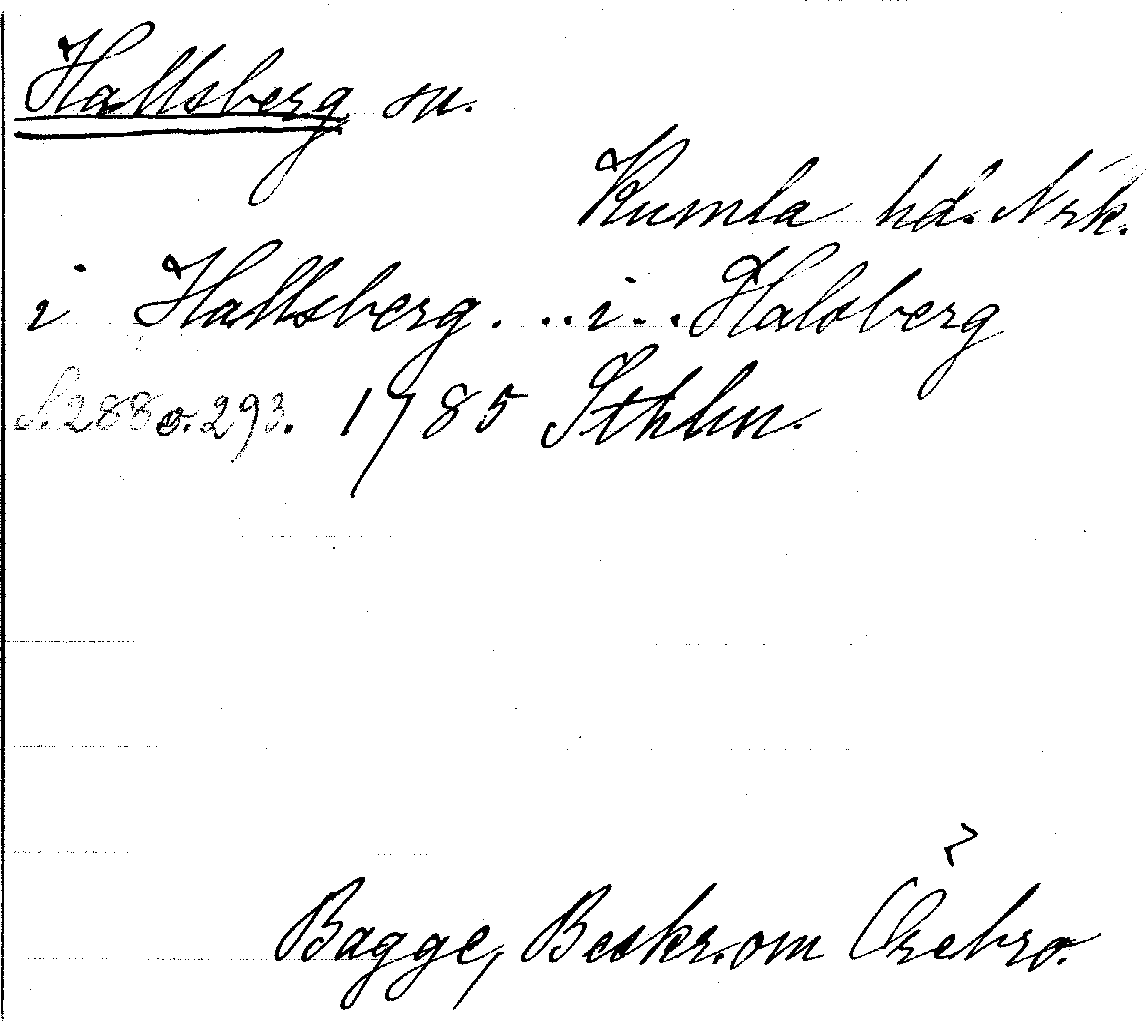 Hallsberg sn.
Kumla hd. Nrk.
i Hallsberg. .. i .. Halsberg
S. 288 o. 293. 1785 Sthlm.
Bagge, Beskr. om Örebro.